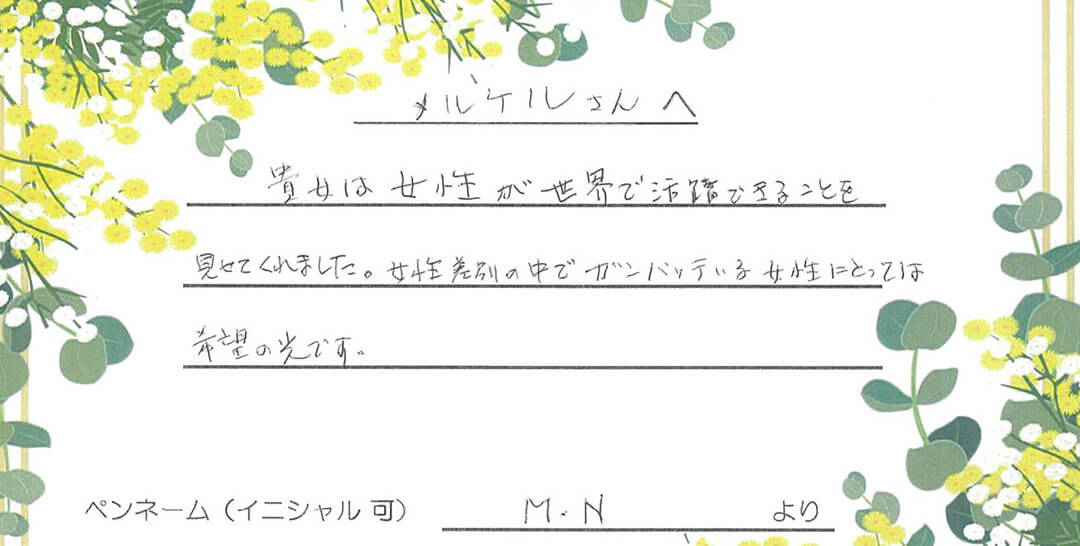 メルケルさんへ
貴女は女性が世界で活躍できることを
見せてくれました。女性差別の中でガンバッテいる女性にとっては
希望の光です。
ペンネーム（イニシャル 可） M.N より